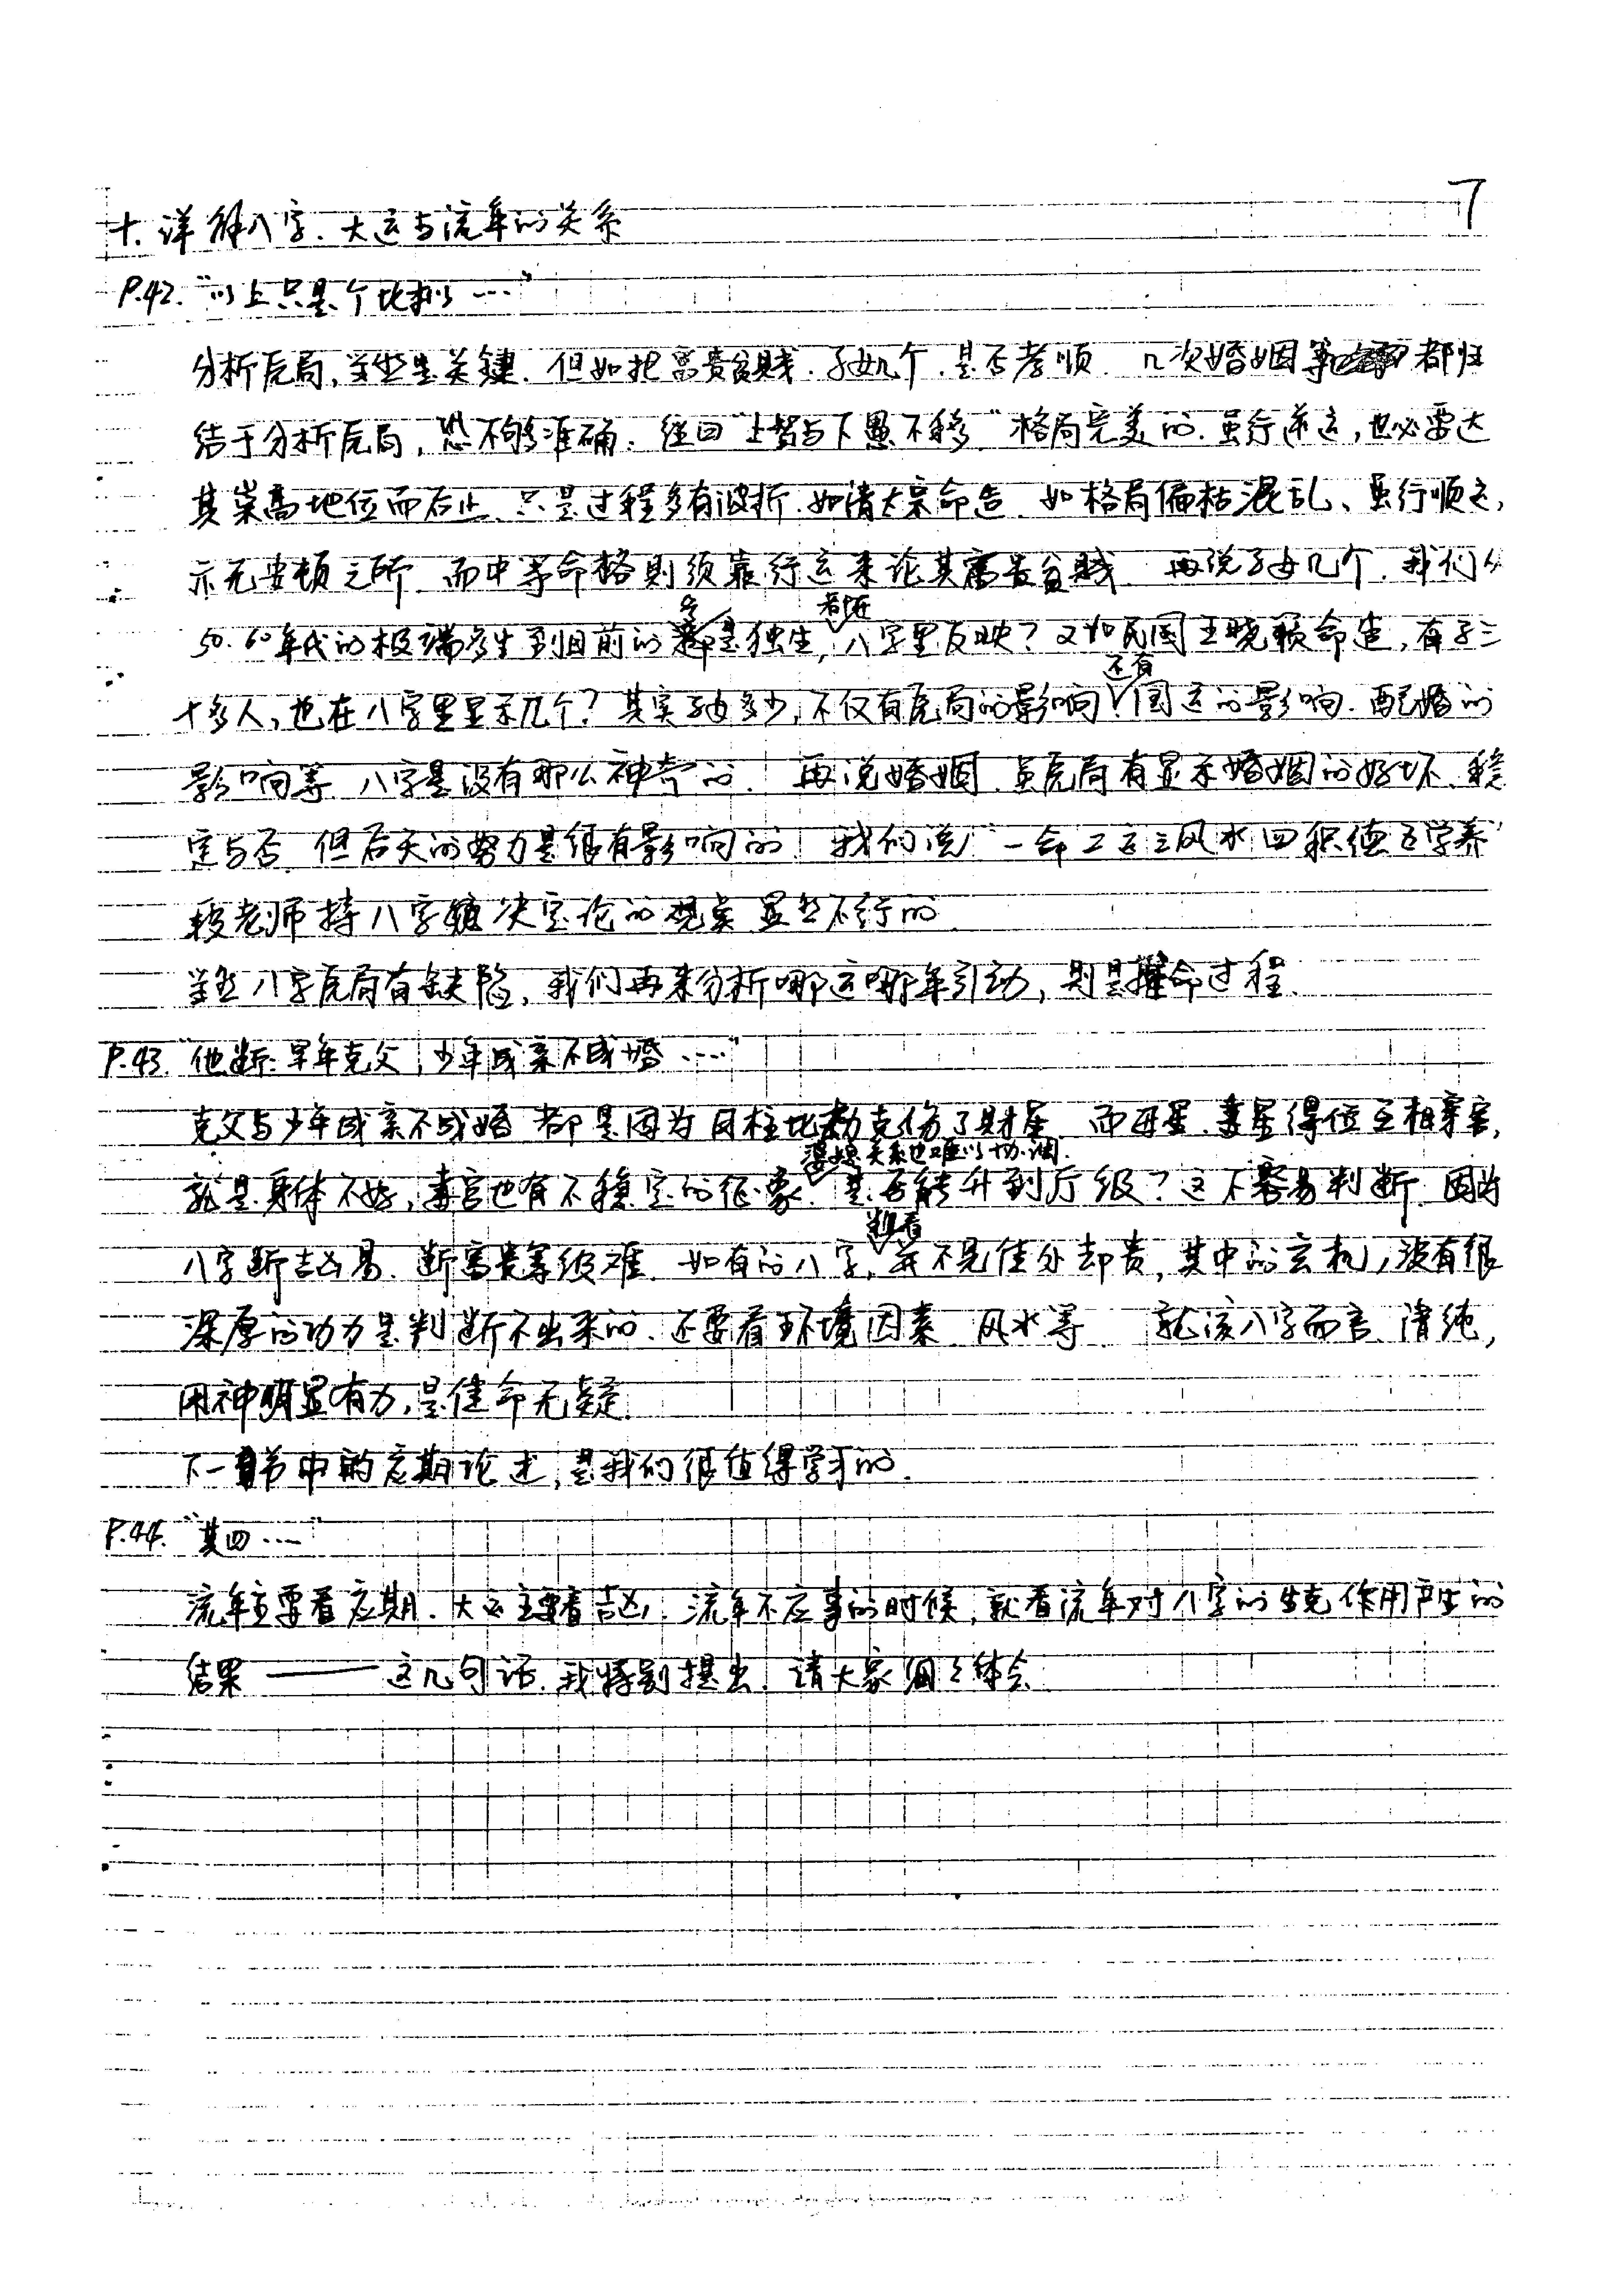 7
十. 详解八字、大运与流年的关系
P.42. “以上只是个比拟……”
分析原局, 当然是关键. 但如把富贵贫贱. 子女几个. 是否孝顺. 几次婚姻等 都归
结于分析原局, 恐不够准确. 经曰“上智与下愚不移” 格局完美的. 虽行逆运, 也必要达
其崇高地位而后止、只是过程多有波折. 如清太宗命造. 如格局偏枯混乱、虽行顺运,
亦无安顿之所. 而中等命格则须靠行运来论其富贵贫贱. 再说子女几个. 我们从
50. 60年代的极端多生到目前的多是独生, 若近八字里反映? 又如民国王晓籁命造, 有子三
十多人, 也在八字里显示几个? 其实子女多少, 不仅有原局的影响. 还有国运的影响. 配婚的
影响等. 八字是没有那么神奇的. 再说婚姻. 虽原局有显示婚姻的好坏、稳
定与否. 但后天的努力是很有影响的! 我们说“一命二运三风水四积德五学养”
段老师持八字 决定论的观点显然不行的.
当然八字原局有缺陷, 我们再来分析哪运哪年引动, 则是推命过程.
P.43. “他断: 早年克父, 少年成亲不成婚……”
克父与少年成亲不成婚 都是因为月柱比劫克伤了财星. 而母星. 妻星得位互相穿害,
就是身体不好, 妻宫也有不稳定的征象. 婆媳关系也难以协调. 是否能升到厅级? 这不容易判断. 因为
八字断吉凶易. 断富贵等级难. 如有的八字, 粗看并不见佳处却贵, 其中的玄机, 没有很
深厚的功力是判断不出来的. 还要看环境因素、风水等. 就该八字而言. 清纯,
用神明显有力, 是佳命无疑.
下一章节中的应期论述, 是我们很值得学习的.
P.44. “其四……”
流年主要看应期. 大运主要看吉凶. 流年不应事的时候, 就看流年对八字的生克作用产生的
结果 —— 这几句话. 我特别提出. 请大家细细体会.